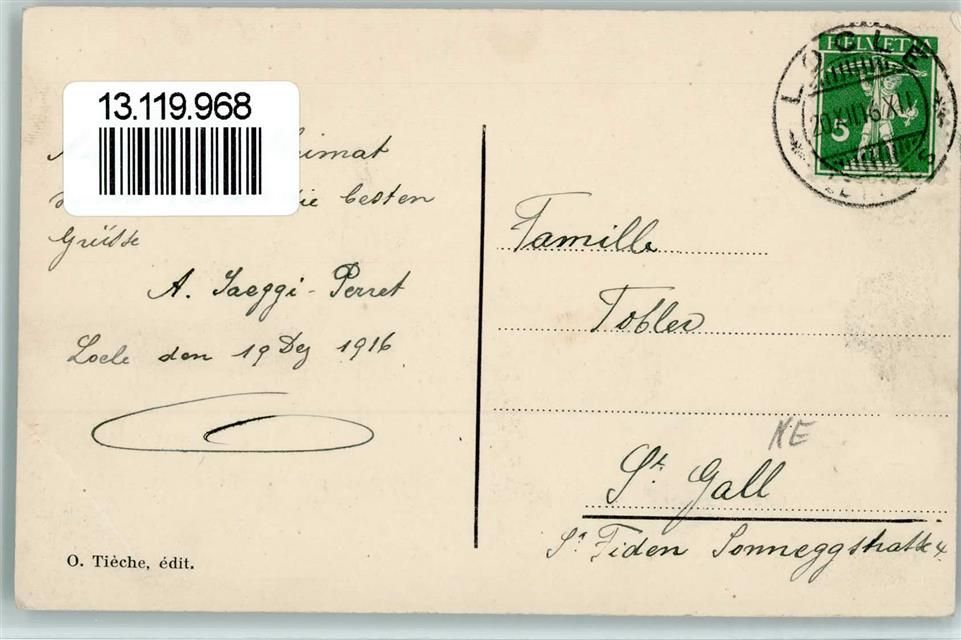 13.119.968
besten
Grüsse
A. Jaeggi-Perret
Locle den 19 Dez 1916
O. Tièche, édit.
HELVETIA
5
LOCLE
Famille
Tobler
NE
St. Gall
St Fiden Sonneggstrasse 4